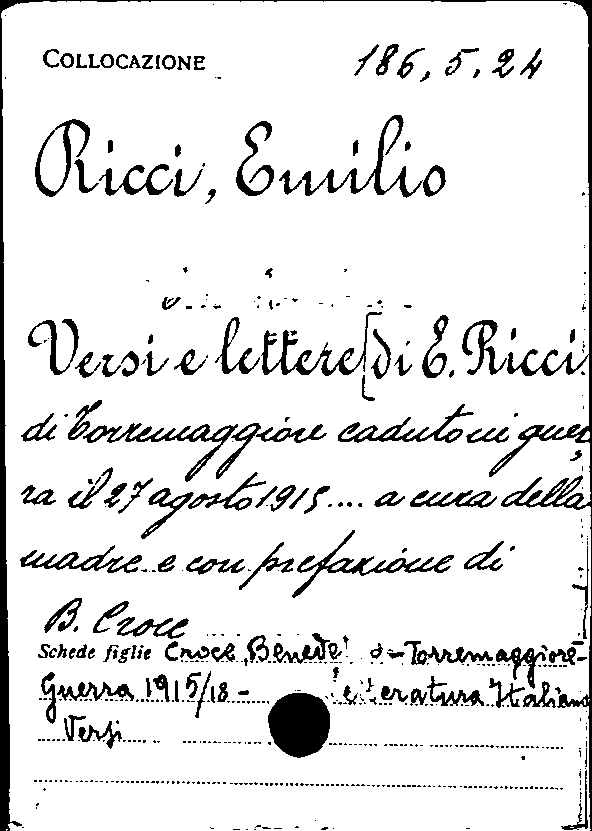 COLLOCAZIONE 186, 5, 24
Ricci, Emilio
Versi e lettere [di E. Ricci
di Torremaggiore caduto in guer,
ra il 27 agosto 1915.... a cura della
madre e con prefazione di
B. Croce
Schede figlie Croce, Benede o - Torremaggiore -
Guerra 1915/18 - etteratura Italiana
Versi